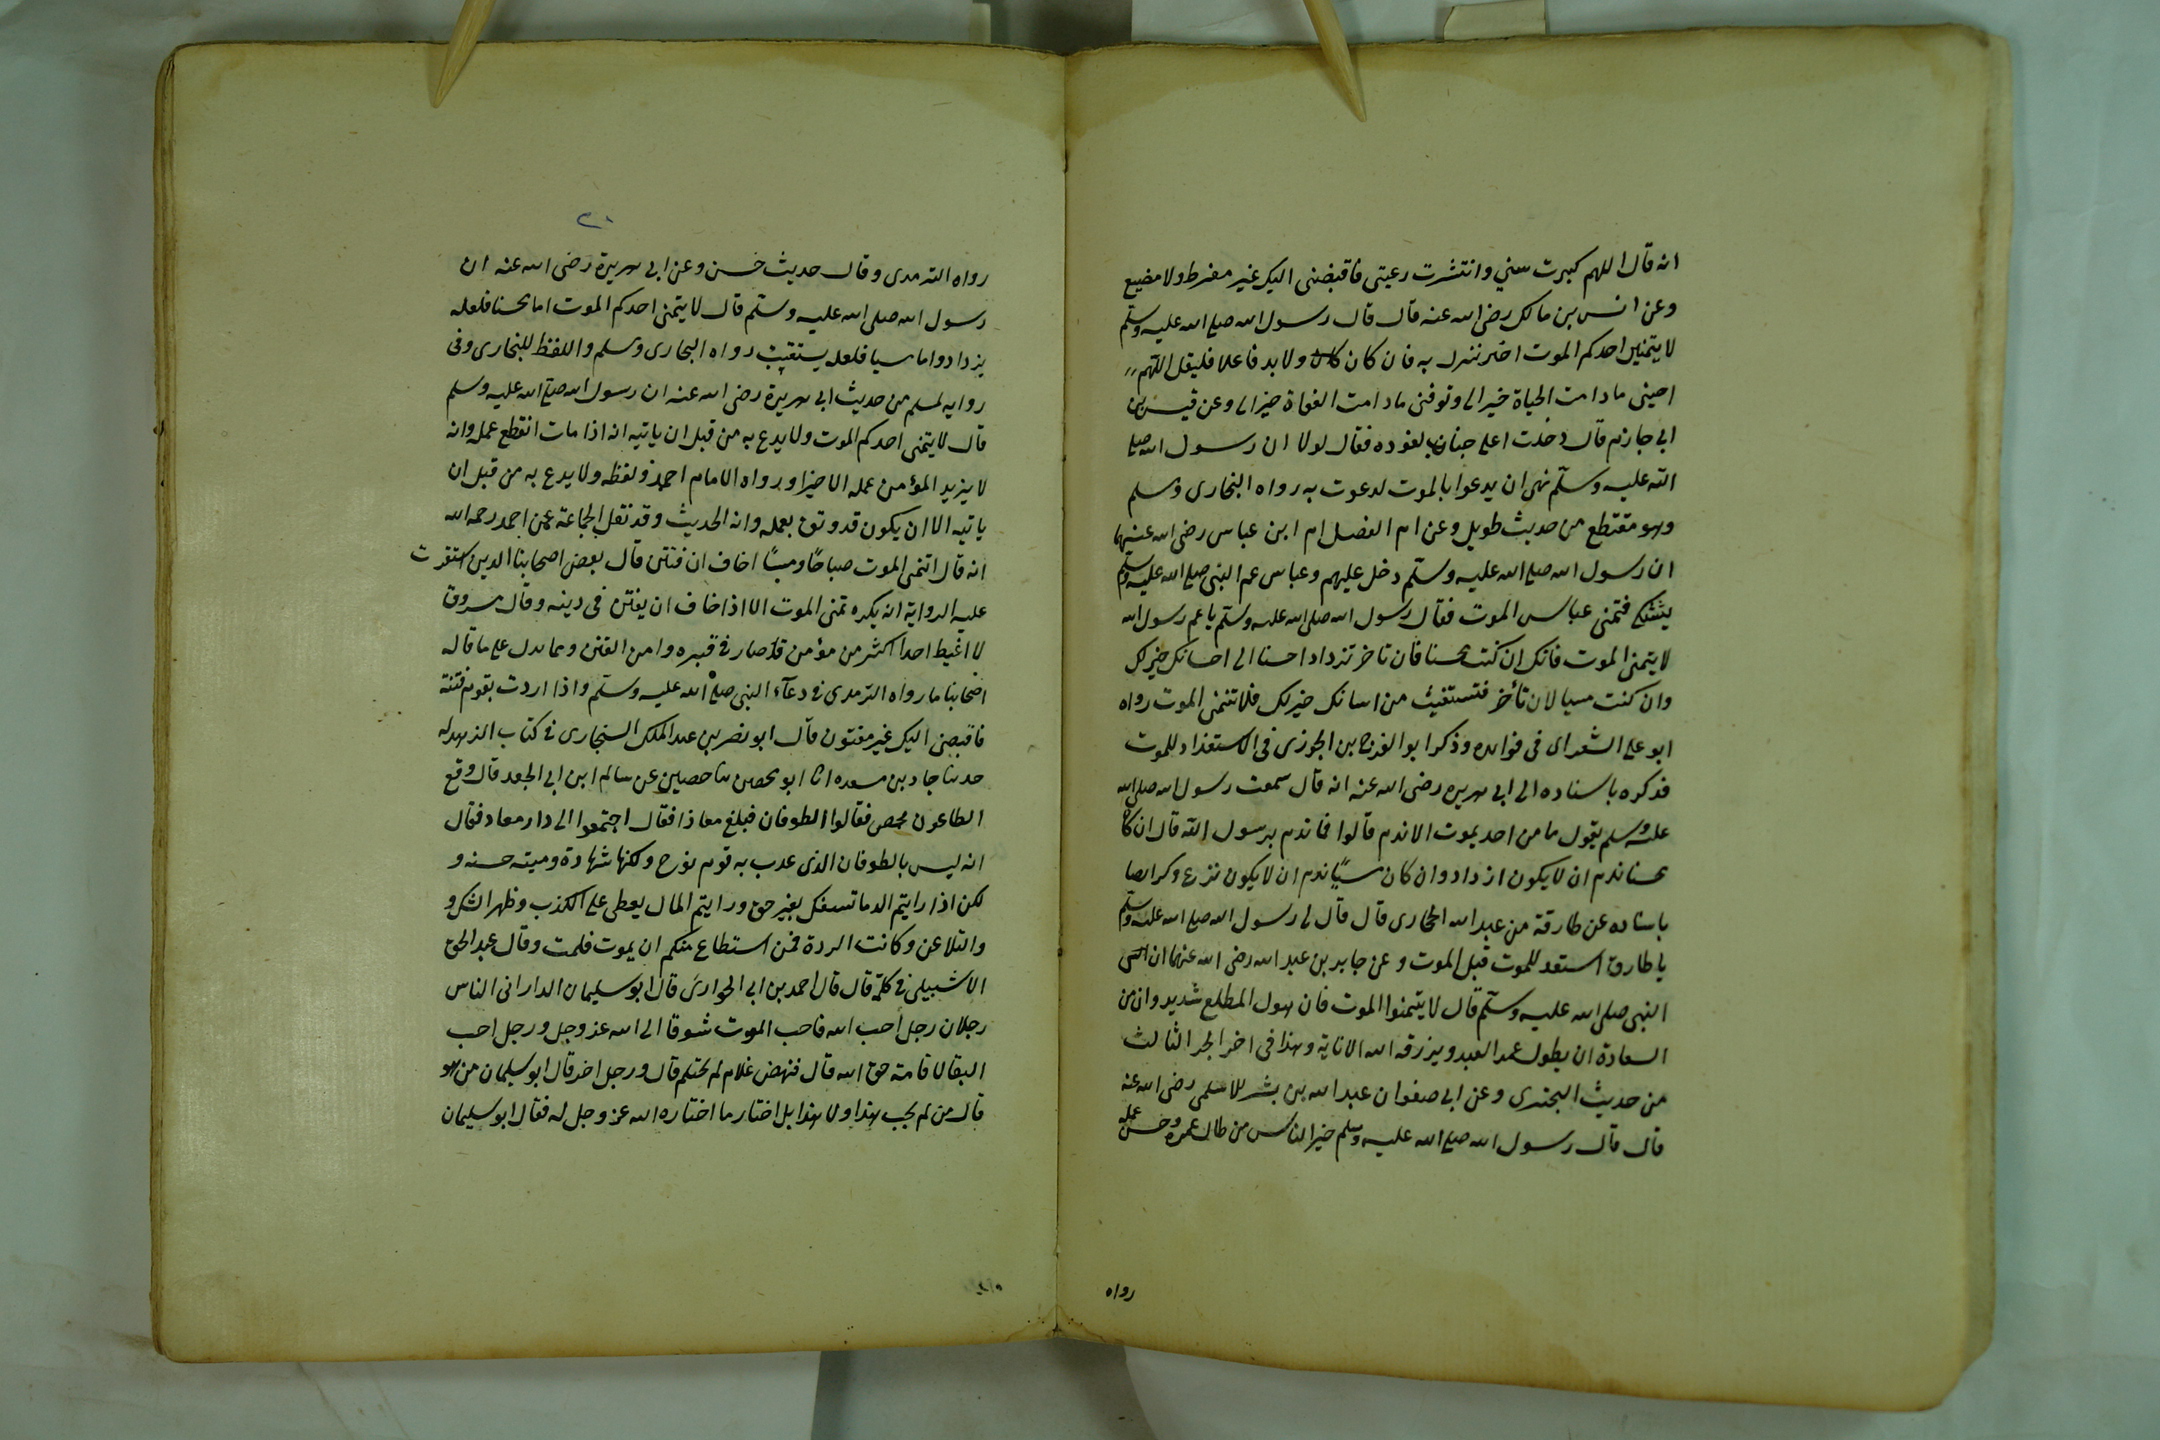 انه قال اللهم كبرت سني وانتشرت رعيتى فاقبضنى اليك غير مفرط ولا مضيع
وعن انس بن مالك رضى الله عنه قال قال رسول الله صلى الله عليه وسلم
لا يتمنين احدكم الموت لضر نزل به فان كان ولا بد فاعلا فليقل اللهم
احينى ما دامت الحياة خيرا لى وتوفنى ما دامت الوفاة خيرا لى وعن قيس بن
ابى حازم قال دخلت على خباب نعوده فقال لولا ان رسول الله صلى
الله عليه وسلم نهى ان يدعوا بالموت لدعوت به رواه البخارى ومسلم
وهو مقتطع من حديث طويل وعن ام الفضل ام ابن عباس رضى الله عنهما
ان رسول الله صلى الله عليه وسلم دخل عليهم وعباس عم النبى صلى الله عليه وسلم
يشتكى فتمنى عباس الموت فقال رسول الله صلى الله عليه وسلم يا عم رسول الله
لا يتمنى الموت فانك ان كنت محسنا فان تاخر تزداد احسنا الى احسانك خير لك
وان كنت مسيا لان تأخر فتستغيث من اسانك خير لك فلا تتمنى الموت رواه
ابو على الشعراى فى فوايده وذكر ابو الفرج بن الجوزى فى الاستعداد للموت
فذكره باسناده الى ابى هريره رضى الله عنه انه قال سمعت رسول الله صلى الله
عليه وسلم يقول ما من احد يموت الا ندم قالوا فما ندم يرسول الله قال ان كا
محسنا ندم ان لا يكون ازداد وان كان سيًا ندم ان لا يكون نزع وكر ايصا
باسناده عن طارقة من عبد الله المحارى قال قال لى رسول الله صلى الله عليه وسلم
يا طارق استعد للموت قبل الموت وعن جابر بن عبد الله رضى الله عنهما ان
النبى صلى الله عليه وسلم قال لا يتمنوا الموت فان هول المطلع شديد وان من
السعادة ان يطول عمر العبد ويرزقه الله الانابة وهذا فى اخر الجز الثالث
من حديث البخترى وعن ابى صفوان عبد الله بن بشر الاسلمى رضى الله عنه
قال قال رسول الله صلى الله عليه وسلم خير الناس من طال عمره وحسن عمله
رواه
٢٠
رواه الترمدى وقال حديث حسن وعن ابى هريرة رضى الله عنه ان
رسول الله صلى الله عليه وسلم قال لا يتمنى احدكم الموت اما محسنا فلعله
يزداد واما سيا فلعله يستعتب رواه البخارى ومسلم واللفظ للبخارى وفى
روايه لمسلم من حديث ابى هريرة رضى الله عنه ان رسول الله صلى الله عليه وسلم
قال لا يتمنى احدكم الموت ولا يدع به من قبل ان ياتيه انه اذا مات انقطع عمله وانه
لا يزيد المؤمن عمله الا خيرا ورواه الامام احمد ولفظه ولا يدع به من قبل ان
ياتيه الا ان يكون قد وثق بعمله وانه الحديث وقد نقل الجماعة عن احمد رحمه الله
انه قال اتمنى الموت صباحًا ومسًا اخاف ان فتن قال بعض اصحابنا الدين استقرت
عليه الرواية انه يكره تمنى الموت الا اذا خاف ان يفتن فى دينه وقال مسروق
لا اغيط احدا اكثر من مؤمن قد صار فى قبره وامن الفتن ومما يدل على ما قاله
اصحابنا ما رواه الترمدى فى دعآء النبى صلى الله عليه وسلم واذا اردت بقوم فتنة
فاقبصنى اليك غير مفتون قال ابو نصر بن عبد الملك السنجارى فى كتاب الزهد له
حدثنا جاد بن مسعده انا ابو محصن ثنا حصين عن سالم ابن ابى الجعد قال وقع
الطاعون بحمص فقالوا الطوفان فبلغ معاذا فقال اجتمعوا الى دار معاد فقال
انه ليس بالطوفان الذى عدب به قوم نوح ولكنها شهادة وميته حسنه و
لكن اذا رايتم الدما تسفك بغير حق ورايتم المال يعطى على الكذب وظهر الشك و
والتلاعن وكانت الردة فمن استطاع منكم ان يموت فليمت وقال عبد الحق
الاشبيلى فى كلمة قال قال احمد بن ابى الحوارى قال ابو سليمان الدارانى الناس
رجلان رجل احب الله فاحب الموت شوقا الى الله عز وجل ورجل احب
البقا لاقامة حق الله قال فنهض غلام لم يحتلم قال ورجل اخر قال ابو سليمان من هو
قال من لم يحب هذا ولا هذا بل اختار ما اختاره الله عز وجل له فقال ابو سليمان